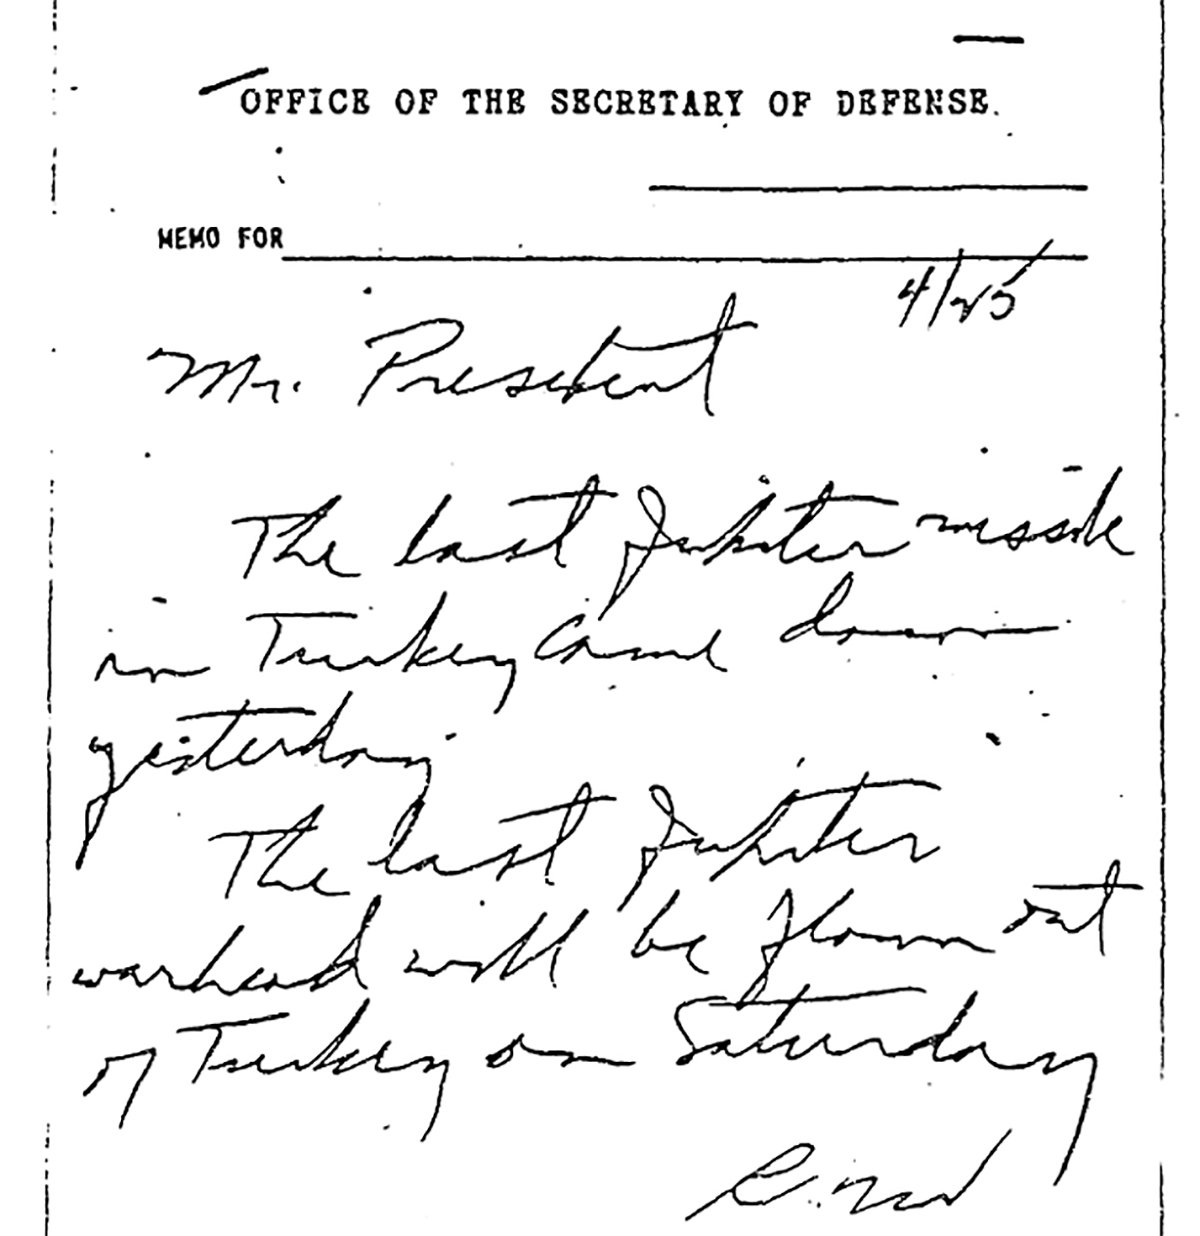 OFFICE OF THE SECRETARY OF DEFENSE.
MEMO FOR
4/25
Mr. President
The last Jupiter missile
in Turkey came down
yesterday.
The last Jupiter
warhead will be flown out
of Turkey on Saturday